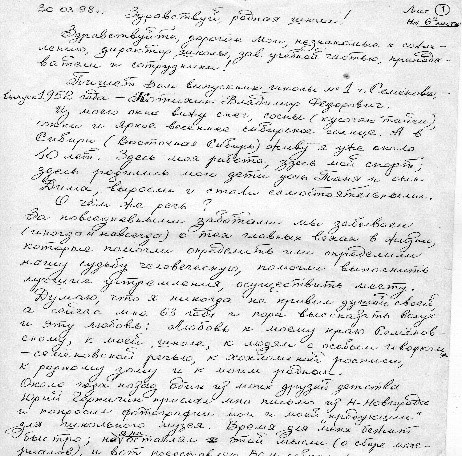 20.03.98г.
Лист 1
На 6ти листах
Здравствуй, родная школа!
Здравствуйте, дорогие мои, незнакомые к сожа-
лению, директор школы, зав. учебной частью, препода-
ватели и сотрудники!
Пишет Вам выпускник школы №1 г. Семенова,
выпуск 1952 года – Владимир Федорович.
Из моего окна вижу снег, сосны (кусочек тайги),
и яркое весеннее сибирское солнце. А в
Сибири (Восточная Сибирь) живу я уже около
40 лет. Здесь моя работа, здесь мой спорт,
здесь родились мои дети дочь Таня и сын
Дима, выросли и стали самостоятельными.
О чём же речь?
За повседневными заботами мы забываем
(иногда навсегда) о тех главных в жизни,
которые помогли определить или определили
нашу судьбу человеческую, помогли выполнить
лучшие устремления, осуществить мечту.
Думаю, что я никогда не кривил душой своей
а сейчас мне 63 года и пора высказать вслух
и эту любовь: любовь к моему краю Семёнов-
скому, к моей школе, к людям с особым говорком
– семеновской речью, к хохломской росписи,
к родному дому и к моим родным.
Около года назад один из моих друзей детства
Юрий прислал мне письмо из Н-Новгорода
и попросил фотографии мои и моей "продукции"
для школьного музея. Время для меня бежит
быстро; этой мысли (о сборе мате-
риалов), и вот